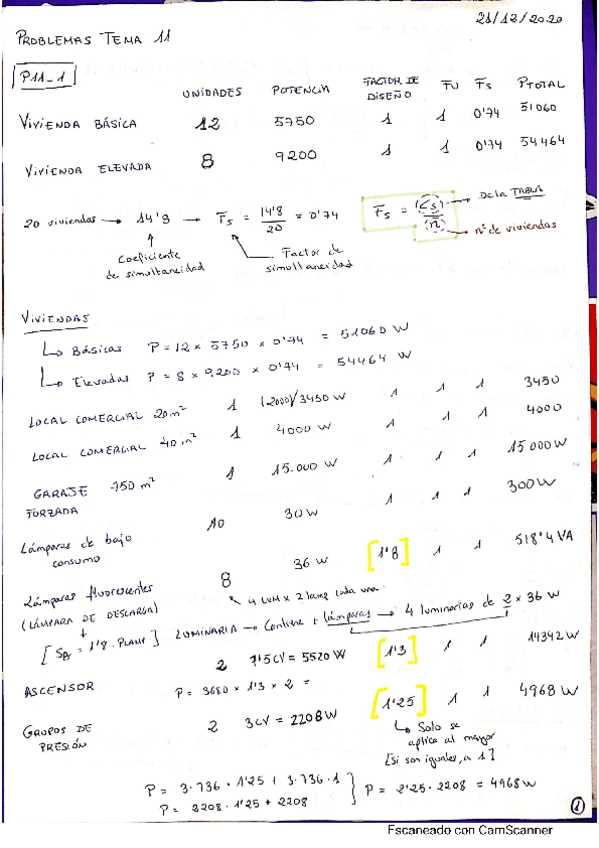 21/12/2020
PROBLEMAS TEMA 11
P11_1
UNIDADES POTENCIA FACTOR DE DISEÑO FU Fs PTOTAL
VIVIENDA BÁSICA 12 5750 1 1 0'74 51060
VIVIENDA ELEVADA 8 9200 1 1 0'74 54464
20 viviendas → 14'8 → Fs = 14'8 / 20 = 0'74
Fs = (Cs) / (n)
De la TABLA
nº de viviendas
Coeficiente de simultaneidad
Factor de simultaneidad
VIVIENDAS
↳ Básicas P = 12 x 5750 x 0'74 = 51060 W
↳ Elevadas P = 8 x 9.200 x 0'74 = 54464 W
LOCAL COMERCIAL 20m² 1 (2000)/3450 W 1 1 1 3450
LOCAL COMERCIAL 40m² 1 4000 W 1 1 1 4000
GARAJE 750 m² FORZADA 1 15.000 W 1 1 1 15.000 W
Lámparas de bajo consumo 10 30 W 1 1 1 300 W
Lámparas fluorescentes 8 36 W [1'8] 1 1 518'4 VA
(LÁMPARA DE DESCARGA)
4 LUM x 2 lamp cada una
= 1'8 · PLAMP ]
LUMINARIA → Contiene + lámparas → 4 luminarias de 2 x 36 W
ASCENSOR 2 7'5CV = 5520 W [1'3] 1 1 14342 W
P = 3680 x 1'3 x 2 =
GRUPOS DE PRESIÓN 2 3CV = 2208 W [1'25] 1 1 4968 W
↳ Solo se aplica al mayor
[Si son iguales, a 1]
P = 3·736 · 1'25 + 3·736 · 1
P = 2208 · 1'25 + 2208
P = 2'25 · 2208 = 4968 W
1
Escaneado con CamScanner